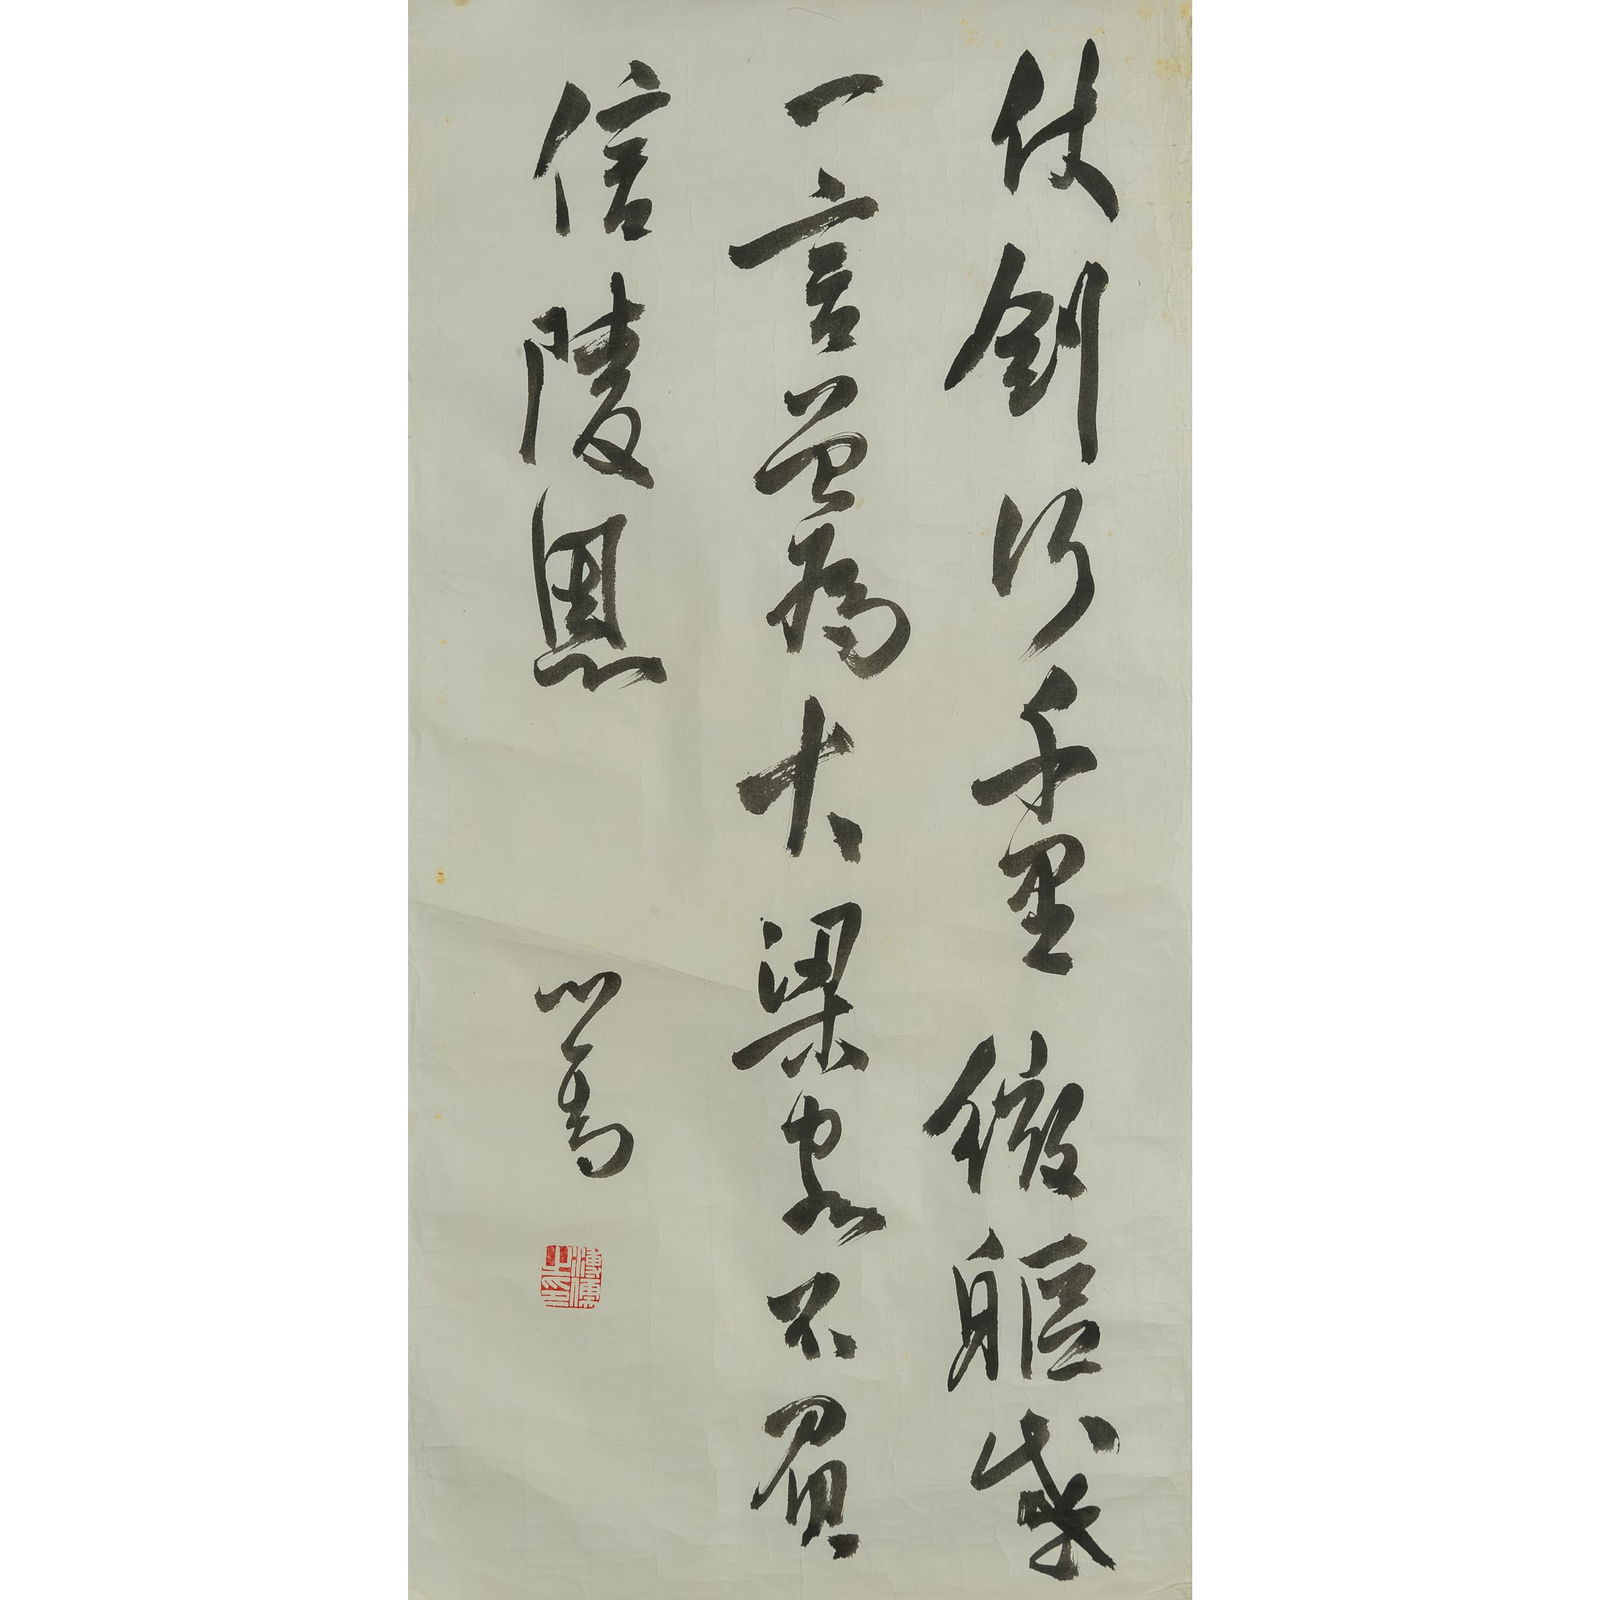 仗劍行千里微軀感
一言曾為大梁客不負
信陵恩
心畬
溥儒之印